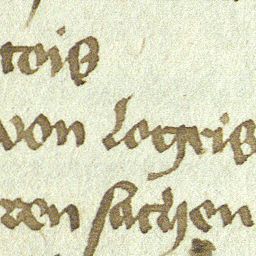 tois
von logris
ren sachen